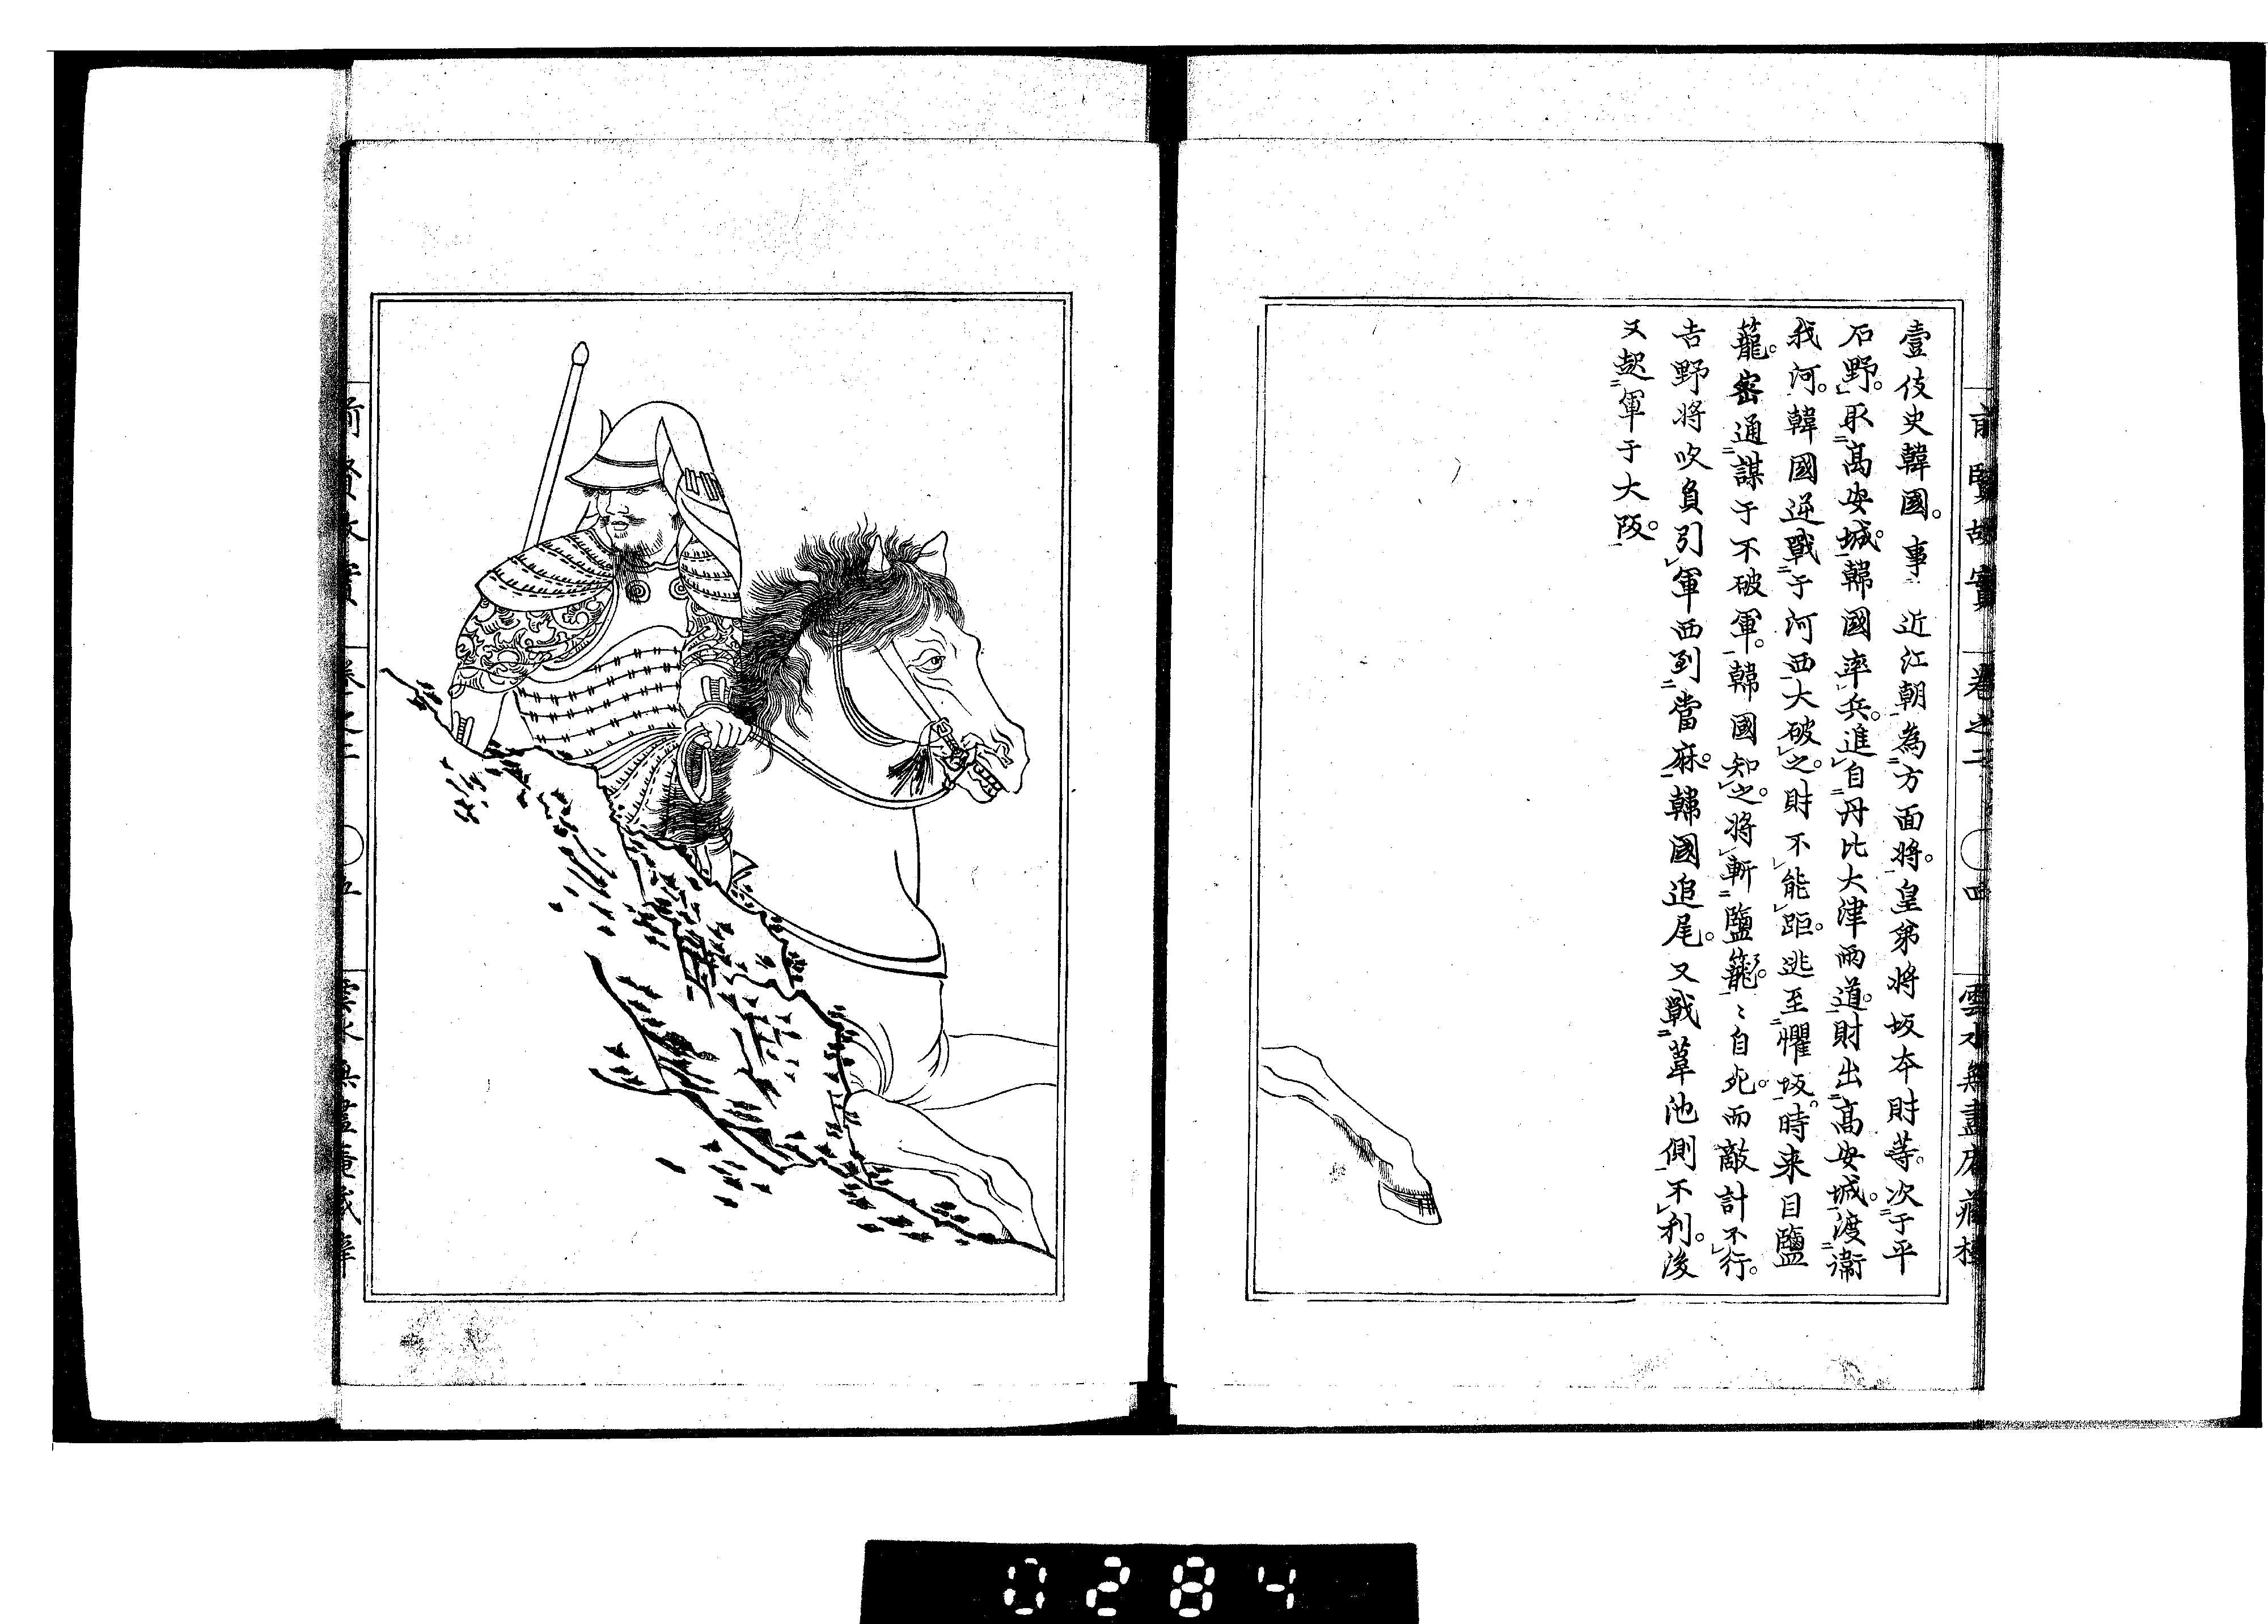 前賢故實 卷之二 〇四 雲水無盡庵藏
壹伎史韓國。事近江朝為方面將。皇弟將坂本財等。次于平
石野。取高安城。韓國率兵。進自丹比大津兩道。財出高安城。渡衛
我河。韓國逆戰于河西大破之。財不能距。逃至懼坂。時来目鹽
籠。密通謀于不破軍。韓國知之。將斬鹽籠。〻自死。而敵計不行。
吉野將吹負引軍西到當麻。韓國追尾。又戰葦池側不利。後
又起軍于大阪。
0284